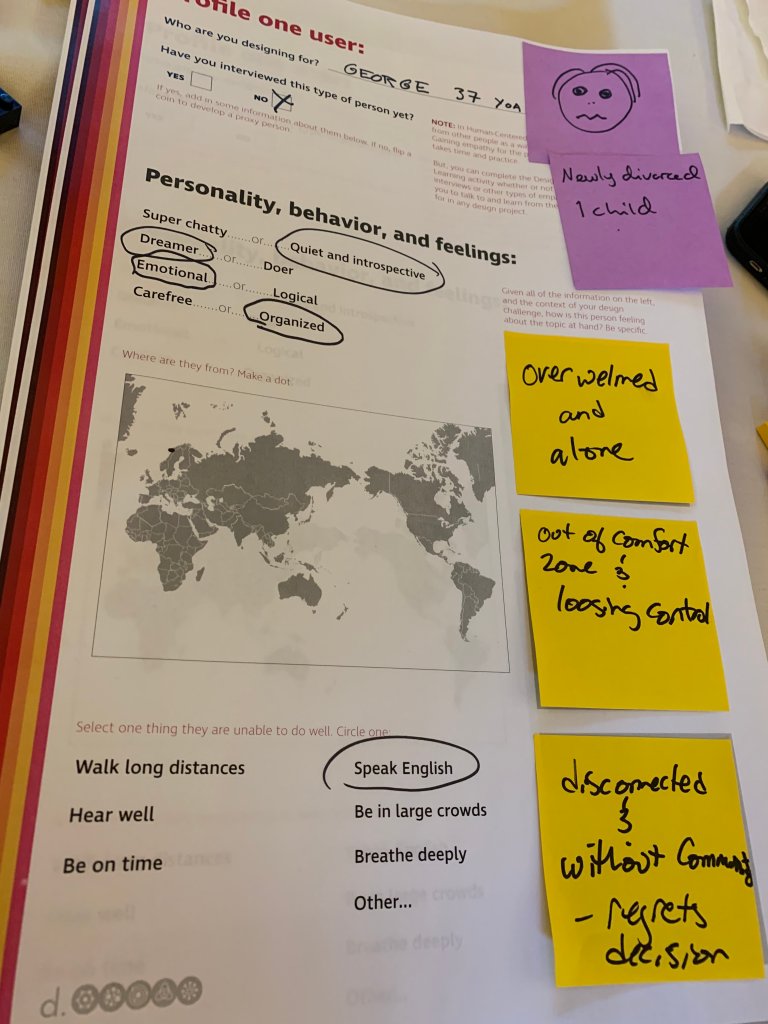 rofile one user:
Who are you designing for? GEORGE 37 YOA
Have you interviewed this type of person yet?
YES
NO
If yes, add in some information about them below. If no, flip a
coin to develop a proxy person.
NOTE: In Human-Centered
from other people as a wa
Gaining empathy for the p
takes time and practice.
But, you can complete the Desi
Learning activity whether or not
interviews or other types of emp
you to talk to and learn from the
for in any design project.
Newly divorced
1 child
Personality, behavior, and feelings:
Super chatty.......or.......Quiet and introspective
Dreamer.......or.......Doer
Emotional.......or.......Logical
Carefree.......or.......Organized
Given all of the information on the left,
and the context of your design
challenge, how is this person feeling
about the topic at hand? Be specific.
Where are they from? Make a dot.
Overwelmed
and
alone
out of comfort
zone &
loosing control
Select one thing they are unable to do well. Circle one:
Walk long distances
Hear well
Be on time
Speak English
Be in large crowds
Breathe deeply
Other...
disconnected
&
without Community
- regrets
decision
d.